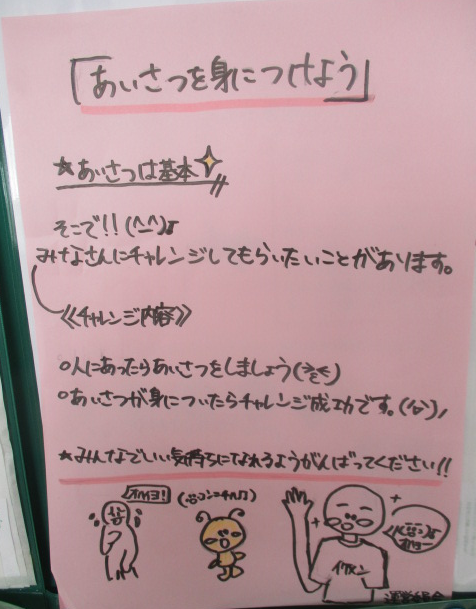 「あいさつを身につけよう」
★あいさつは基本
そこで!!(^_^)♪
みなさんにチャレンジしてもらいたいことがあります。
《チャレンジ内容》
○人にあったらあいさつをしましょう
○あいさつが身についたらチャレンジ成功です。
★みんなでいい気持ちになれるようがんばってください!!
オハヨ!
コンニチハ
イケメン